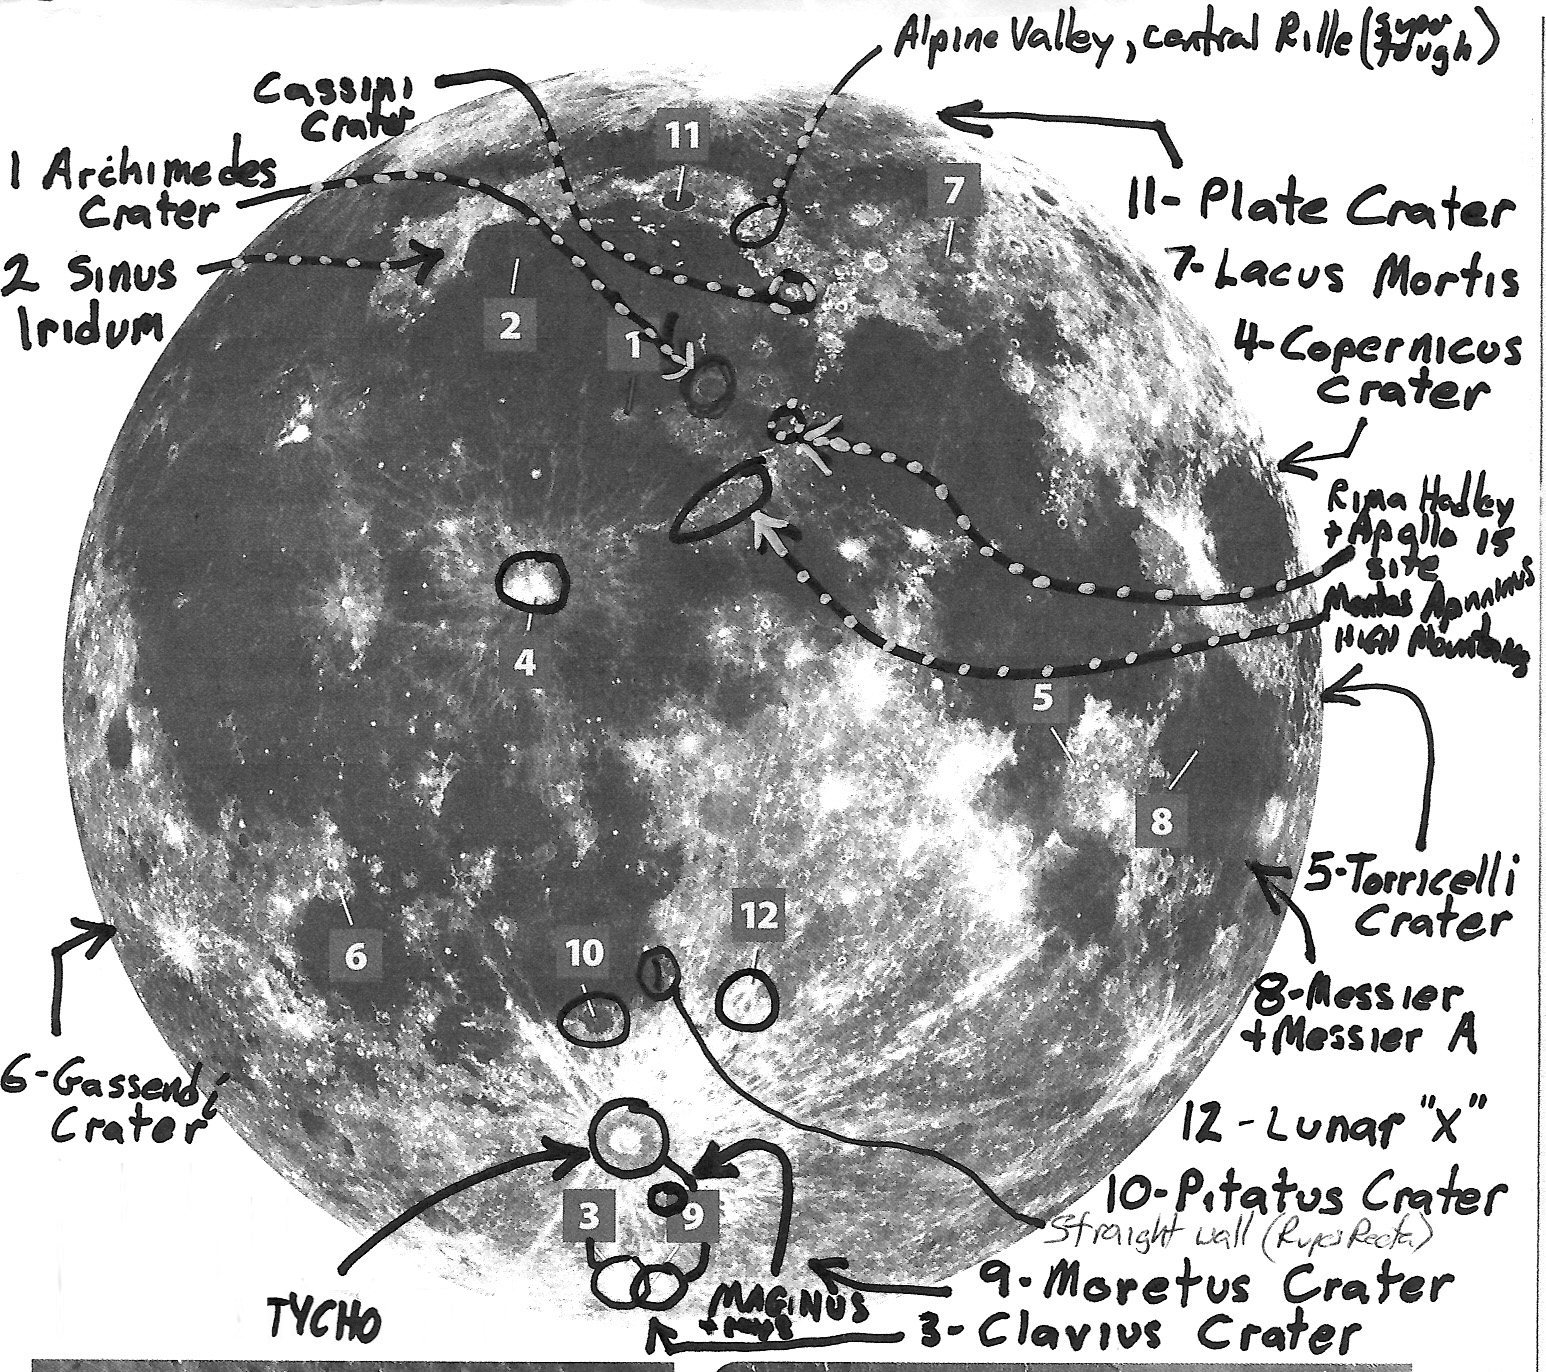 Alpine Valley, central Rille (super
tough)
Cassini
Crater
11
1 Archimedes
Crater
7
11- Plate Crater
2 Sinus
Iridum
7- Lacus Mortis
2
1
4- Copernicus
Crater
Rima Hadley
+ Apollo 15
site
Montes Apnninus
High Mountains
4
5
8
5- Torricelli
Crater
12
10
6
8- Messier
+ Messier A
6- Gassendi
Crater
12 - Lunar "X"
10- Pitatus Crater
3
9
Straight wall (Rupes Recta)
9- Moretus Crater
MAGINUS
+ rays
TYCHO
3- Clavius Crater